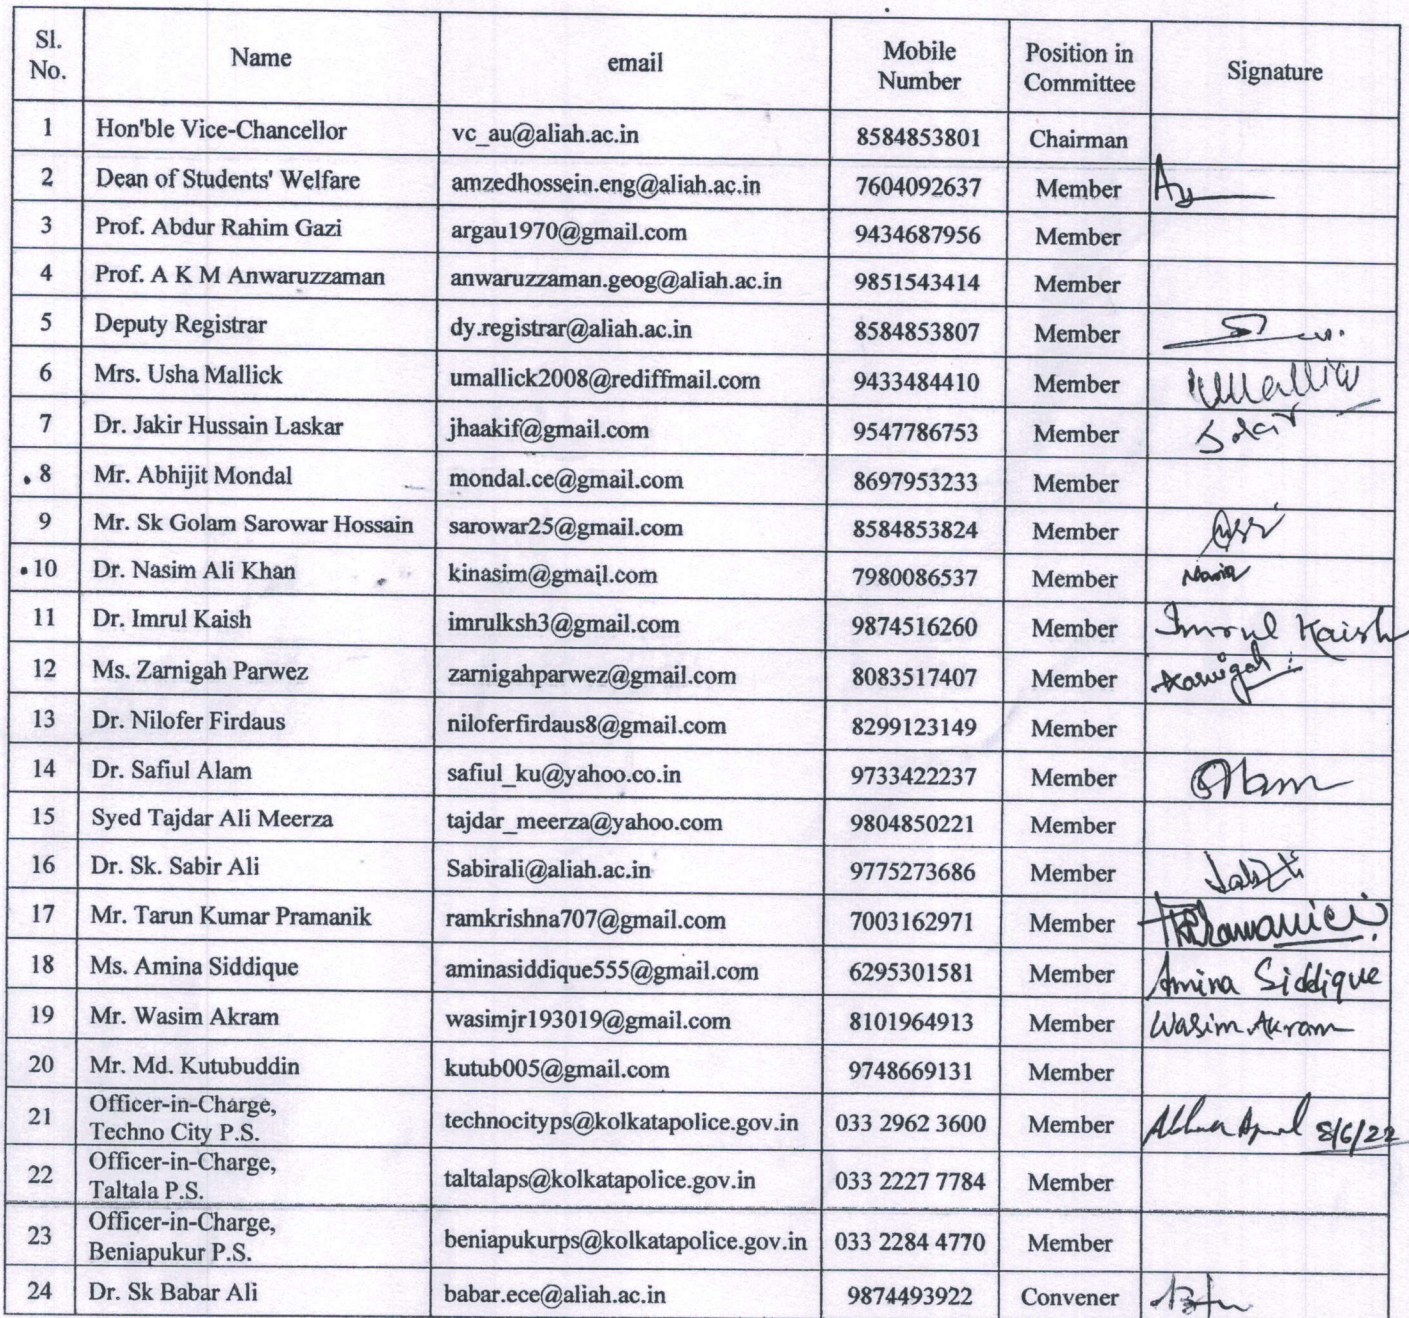 Sl. No. Name email Mobile Number Position in Committee Signature
1 Hon'ble Vice-Chancellor vc_au@aliah.ac.in 8584853801 Chairman
2 Dean of Students' Welfare amzedhossein.eng@aliah.ac.in 7604092637 Member
3 Prof. Abdur Rahim Gazi argau1970@gmail.com 9434687956 Member
4 Prof. A K M Anwaruzzaman anwaruzzaman.geog@aliah.ac.in 9851543414 Member
5 Deputy Registrar dy.registrar@aliah.ac.in 8584853807 Member
6 Mrs. Usha Mallick umallick2008@rediffmail.com 9433484410 Member
7 Dr. Jakir Hussain Laskar jhaakif@gmail.com 9547786753 Member
8 Mr. Abhijit Mondal mondal.ce@gmail.com 8697953233 Member
9 Mr. Sk Golam Sarowar Hossain sarowar25@gmail.com 8584853824 Member
10 Dr. Nasim Ali Khan kinasim@gmail.com 7980086537 Member
11 Dr. Imrul Kaish imrulksh3@gmail.com 9874516260 Member Imrul Kaish
12 Ms. Zarnigah Parwez zarnigahparwez@gmail.com 8083517407 Member Zarnigah
13 Dr. Nilofer Firdaus niloferfirdaus8@gmail.com 8299123149 Member
14 Dr. Safiul Alam safiul_ku@yahoo.co.in 9733422237 Member
15 Syed Tajdar Ali Meerza tajdar_meerza@yahoo.com 9804850221 Member
16 Dr. Sk. Sabir Ali Sabirali@aliah.ac.in 9775273686 Member
17 Mr. Tarun Kumar Pramanik ramkrishna707@gmail.com 7003162971 Member
18 Ms. Amina Siddique aminasiddique555@gmail.com 6295301581 Member Amina Siddique
19 Mr. Wasim Akram wasimjr193019@gmail.com 8101964913 Member Wasim Akram
20 Mr. Md. Kutubuddin kutub005@gmail.com 9748669131 Member
21 Officer-in-Charge, Techno City P.S. technocityps@kolkatapolice.gov.in 033 2962 3600 Member 8/6/22
22 Officer-in-Charge, Taltala P.S. taltalaps@kolkatapolice.gov.in 033 2227 7784 Member
23 Officer-in-Charge, Beniapukur P.S. beniapukurps@kolkatapolice.gov.in 033 2284 4770 Member
24 Dr. Sk Babar Ali babar.ece@aliah.ac.in 9874493922 Convener